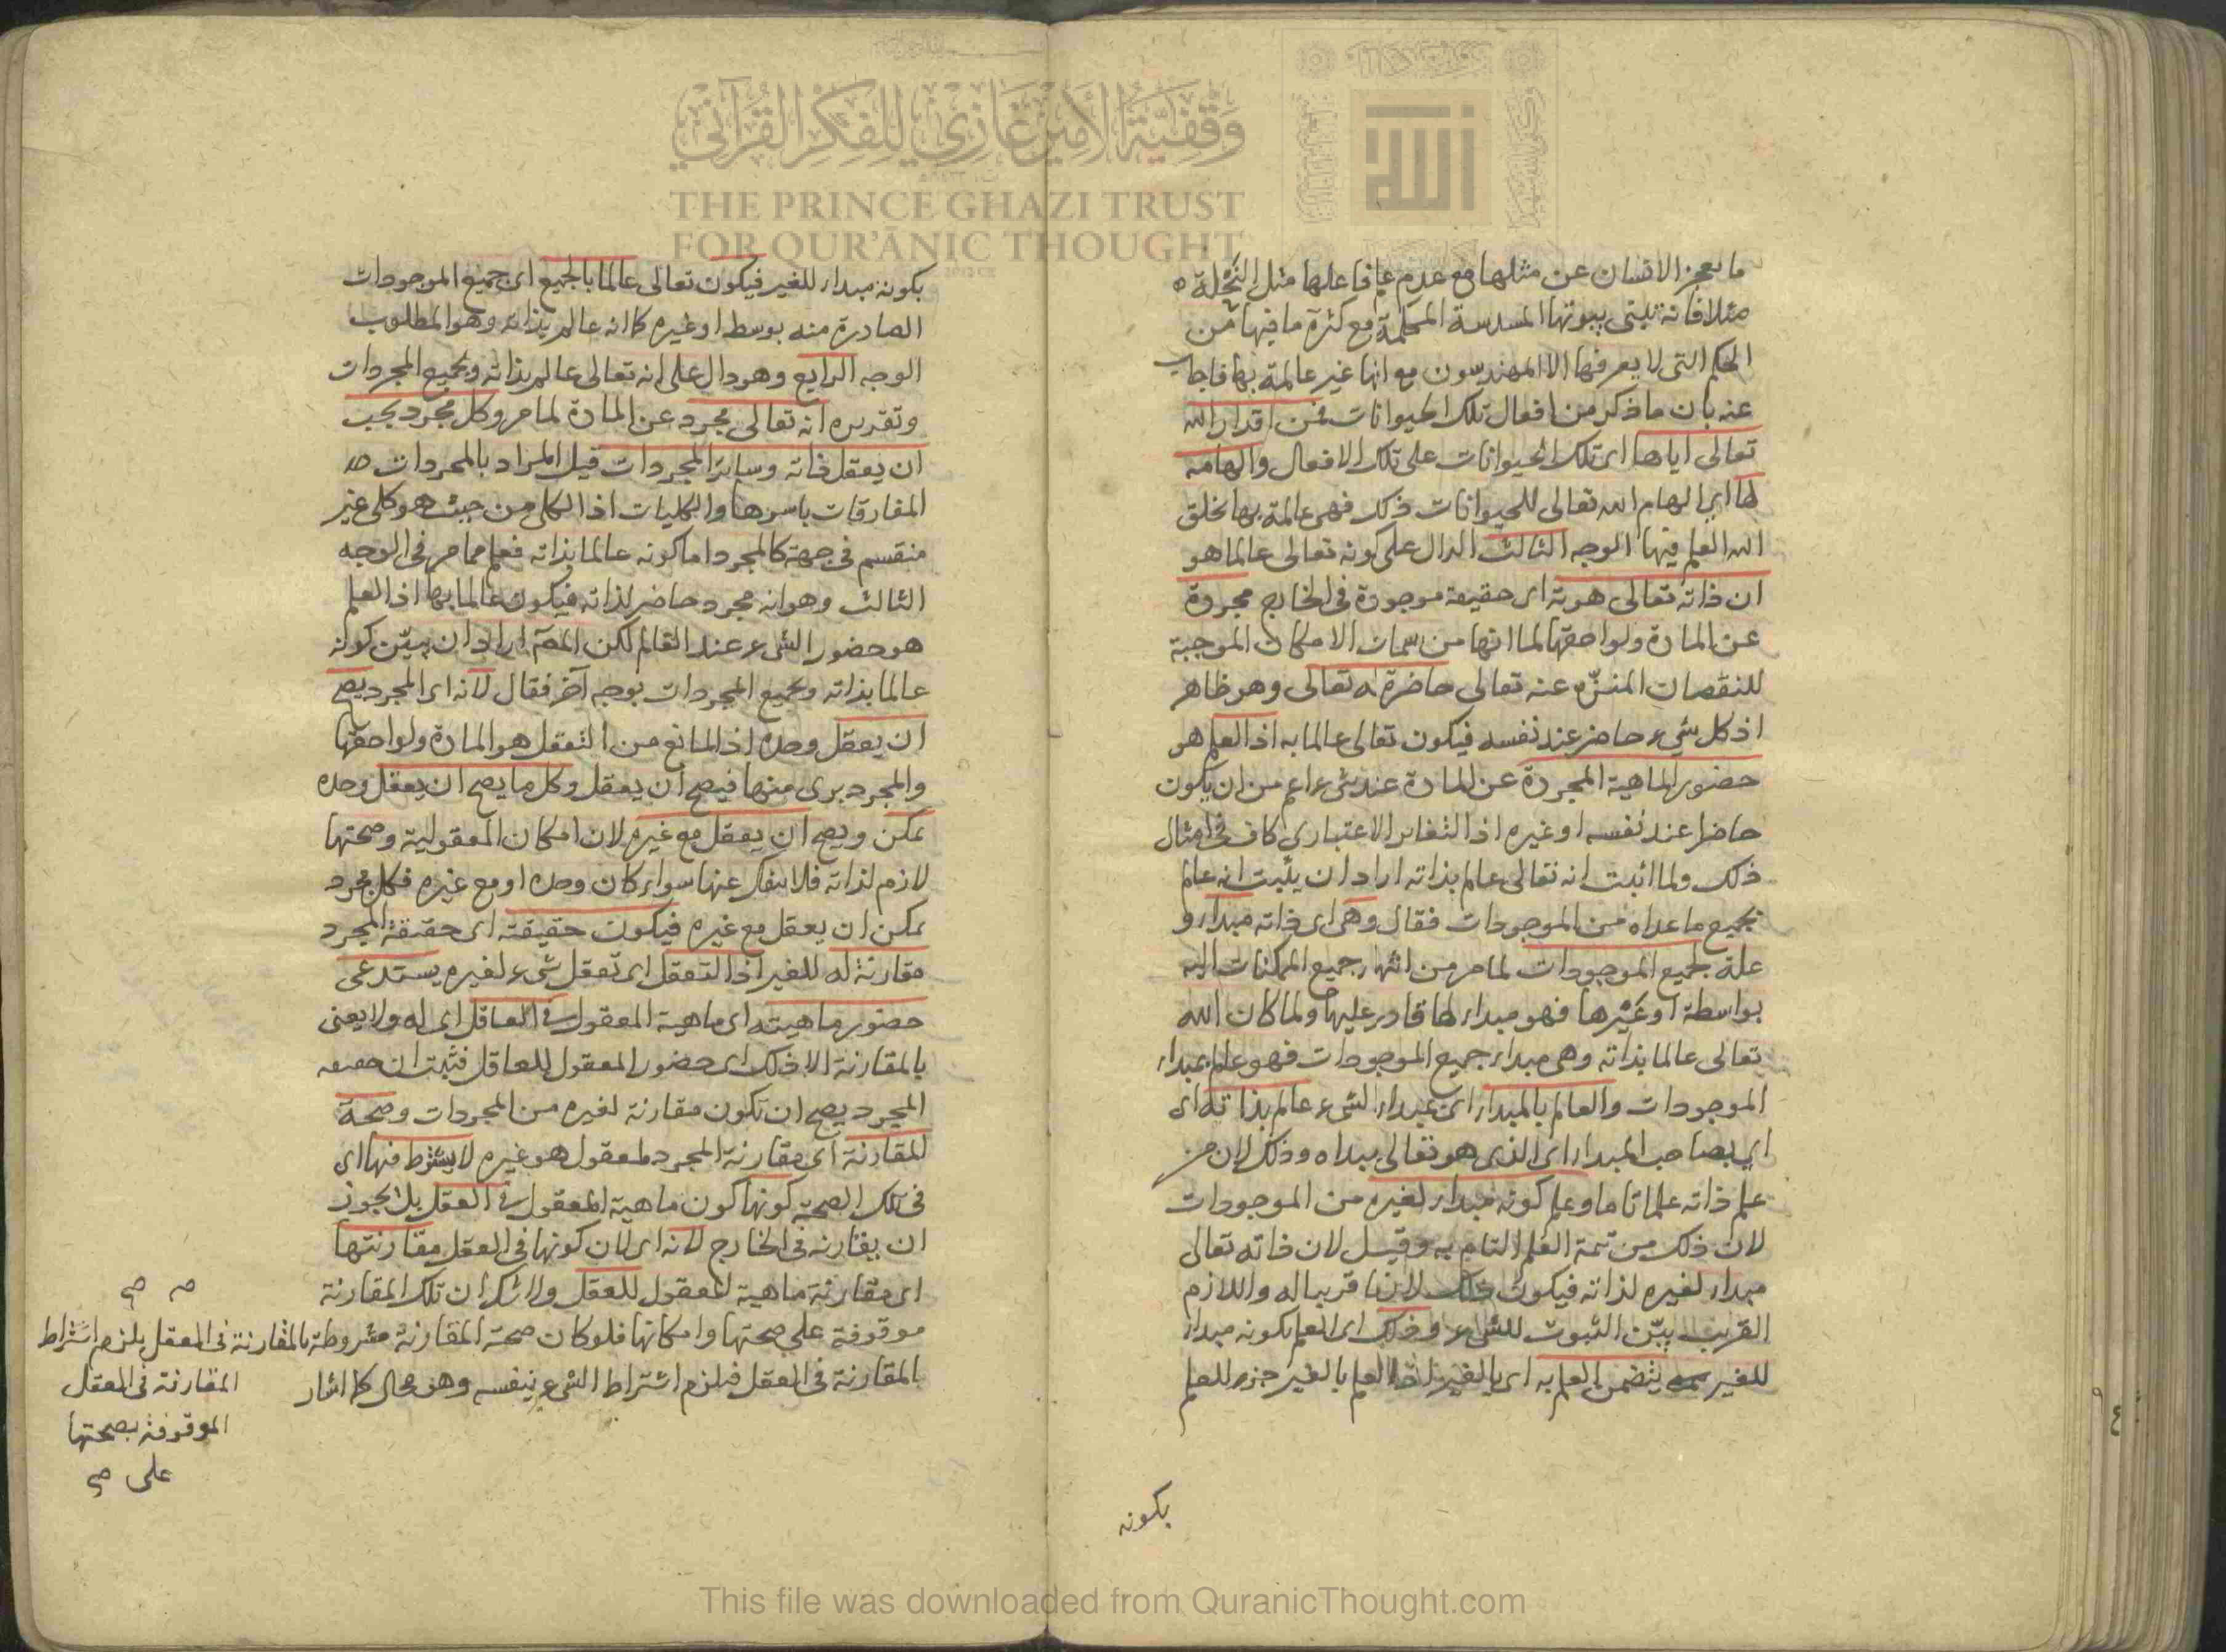 ما يعجز الانسان عن مثلها مع عدم علم فاعلها مثل النحلة
مثلا فانه تبنى بيوتها المسدسة المحكمة مع كثرة ما فيها من
الحكم التى لا يعرفها الا المهندسون مع انها غير عالمة بها فاجاب
عنه بان ما ذكر من افعال تلك الحيوانات فمن اقدار الله
تعالى اياها اى تلك الحيوانات على تلك الافعال والهامه
لها اى الهام الله تعالى للحيوانات ذلك فهى عالمة بها بخلق
الله العلم فيها الوجه الثالث الدال على كونه تعالى عالما هو
ان ذاته تعالى هوية اى حقيقة موجودة فى الخارج مجردة
عن المادة ولواحقها لما انها من سمات الامكان الموجبة
للنقصان المنزه عنه تعالى حاضرة له تعالى وهو ظاهر
اذ كل شىء حاضر عند نفسه فيكون تعالى عالما به اذ العلم هو
حضور الماهية المجردة عن المادة عند شىء اعم من ان يكون
حاضرا عند نفسه او غيره اذ التغاير الاعتبارى كاف فى امثال
ذلك ولما اثبت انه تعالى عالم بذاته اراد ان يثبت انه عالم
بجميع ما عداه من الموجودات فقال وهى اى ذاته مبداء و
علة لجميع الموجودات لما مر من انتهاء جميع الممكنات اليه
بواسطة او غيرها فهو مبداء لها قادر عليها ولما كان الله
تعالى عالما بذاته وهى مبداء جميع الموجودات فهو عالم بمبداء
الموجودات والعالم بالمبداء اى بمبداء الشىء عالم بذاته اى
اى بصاحب المبداء اى الذى هو تعالى مبداه وذلك لان من
علم ذاته علما تاما وعلم كونه مبداء لغيره من الموجودات
لان ذلك من تتمة العلم التام به وقيل لان ذاته تعالى
مبداء لغيره لذاته فيكون ذلك لازما قريبا له واللازم
القريب بيّن الثبوت للشىء وذلك اى العلم بكونه مبداء
للغير يتضمن العلم به اى بالغير لان العلم بالغير جزء للعلم
بكونه
بكونه مبداء للغير فيكون تعالى عالما بالجميع اى جميع الموجودات
الصادرة منه بوسط او غيره كما انه عالم بذاته وهو المطلوب
الوجه الرابع وهو دال على انه تعالى عالم بذاته وبجميع المجردات
وتقريره انه تعالى مجرد عن المادة لما مر وكل مجرد يجب
ان يعقل ذاته وساير المجردات قيل المراد بالمجردات
المفارقات باسرها والكليات اذ الكلى من حيث هو كلى غير
منقسم فى جهة كالمجرد اما كونه عالما بذاته فعلم مما مر فى الوجه
الثالث وهو انه مجرد حاضر لذاته فيكون عالما بها اذ العلم
هو حضور الشىء عند القائم لكن المص اراد ان يبيّن كونه
عالما بذاته وبجميع المجردات بوجه آخر فقال لانه اى المجرد يصح
ان يعقل وحده اذ المانع من التعقل هو المادة ولواحقها
والمجرد برى منها فيصح ان يعقل وكل ما يصح ان يعقل وحده
يمكن ويصح ان يعقل مع غيره لان امكان المعقولية وصحتها
لازم لذاته فلا ينفك عنها سواء كان وحده او مع غيره فكل مجرد
يمكن ان يعقل مع غيره فيكون حقيقته اى حقيقة المجرد
مقارنة له للغير اذ التعقل اى تعقل شىء لغيره يستدعى
حضور ماهيته اى ماهية المعقول فى العاقل اى له ولا يعنى
بالمقارنة الا ذلك اى حضور المعقول للعاقل فثبت ان حقيقه
المجرد يصح ان تكون مقارنة لغيره من المجردات وصحة
المقارنة اى مقارنة المجرد لمعقول هو غيره لا يشترط فيها اى
فى تلك الصحة كونها كون ماهية المعقول فى العقل بل يجوز
ان يقارنه فى الخارج لانه اى لان كونها فى العقل مقارنتها
اى مقارنة ماهية المعقول للعقل ولا شك ان تلك المقارنة
موقوفة على صحتها وامكانها فلو كان صحة المقارنة مشروطة بالمقارنة فى العقل يلزم اشتراط
بالمقارنة فى العقل فيلزم اشتراط الشىء بنفسه وهو محال كما اشار
صح
المقارنة فى العقل
الموقوفة بصحتها
على صح
وقفية الأمير غازي للفكر القرآني
THE PRINCE GHAZI TRUST
FOR QUR'ĀNIC THOUGHT
This file was downloaded from QuranicThought.com